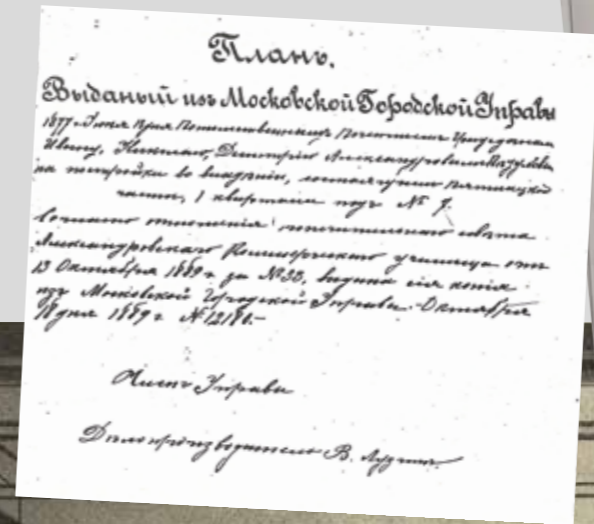 Планъ.
Выданый изъ Московской Городской Управы
1877 г. Июня дня Потомственнымъ Почетнымъ Гражданам
Ивану, Николаю, Дмитрію Александровичамъ
на постройки во владѣніи, состоящемъ Пятницкой
части, 1 квартала подъ №
Вслѣдствіе отношенія попечительнаго совѣта
Александровскаго Коммерческаго училища отъ
13 Октября 1889 г. за № 38, выдана сія копія
изъ Московской Городской Управы. Октября
18 дня 1889 г. № 12180.-
Членъ Управы
Дѣлопроизводитель В.